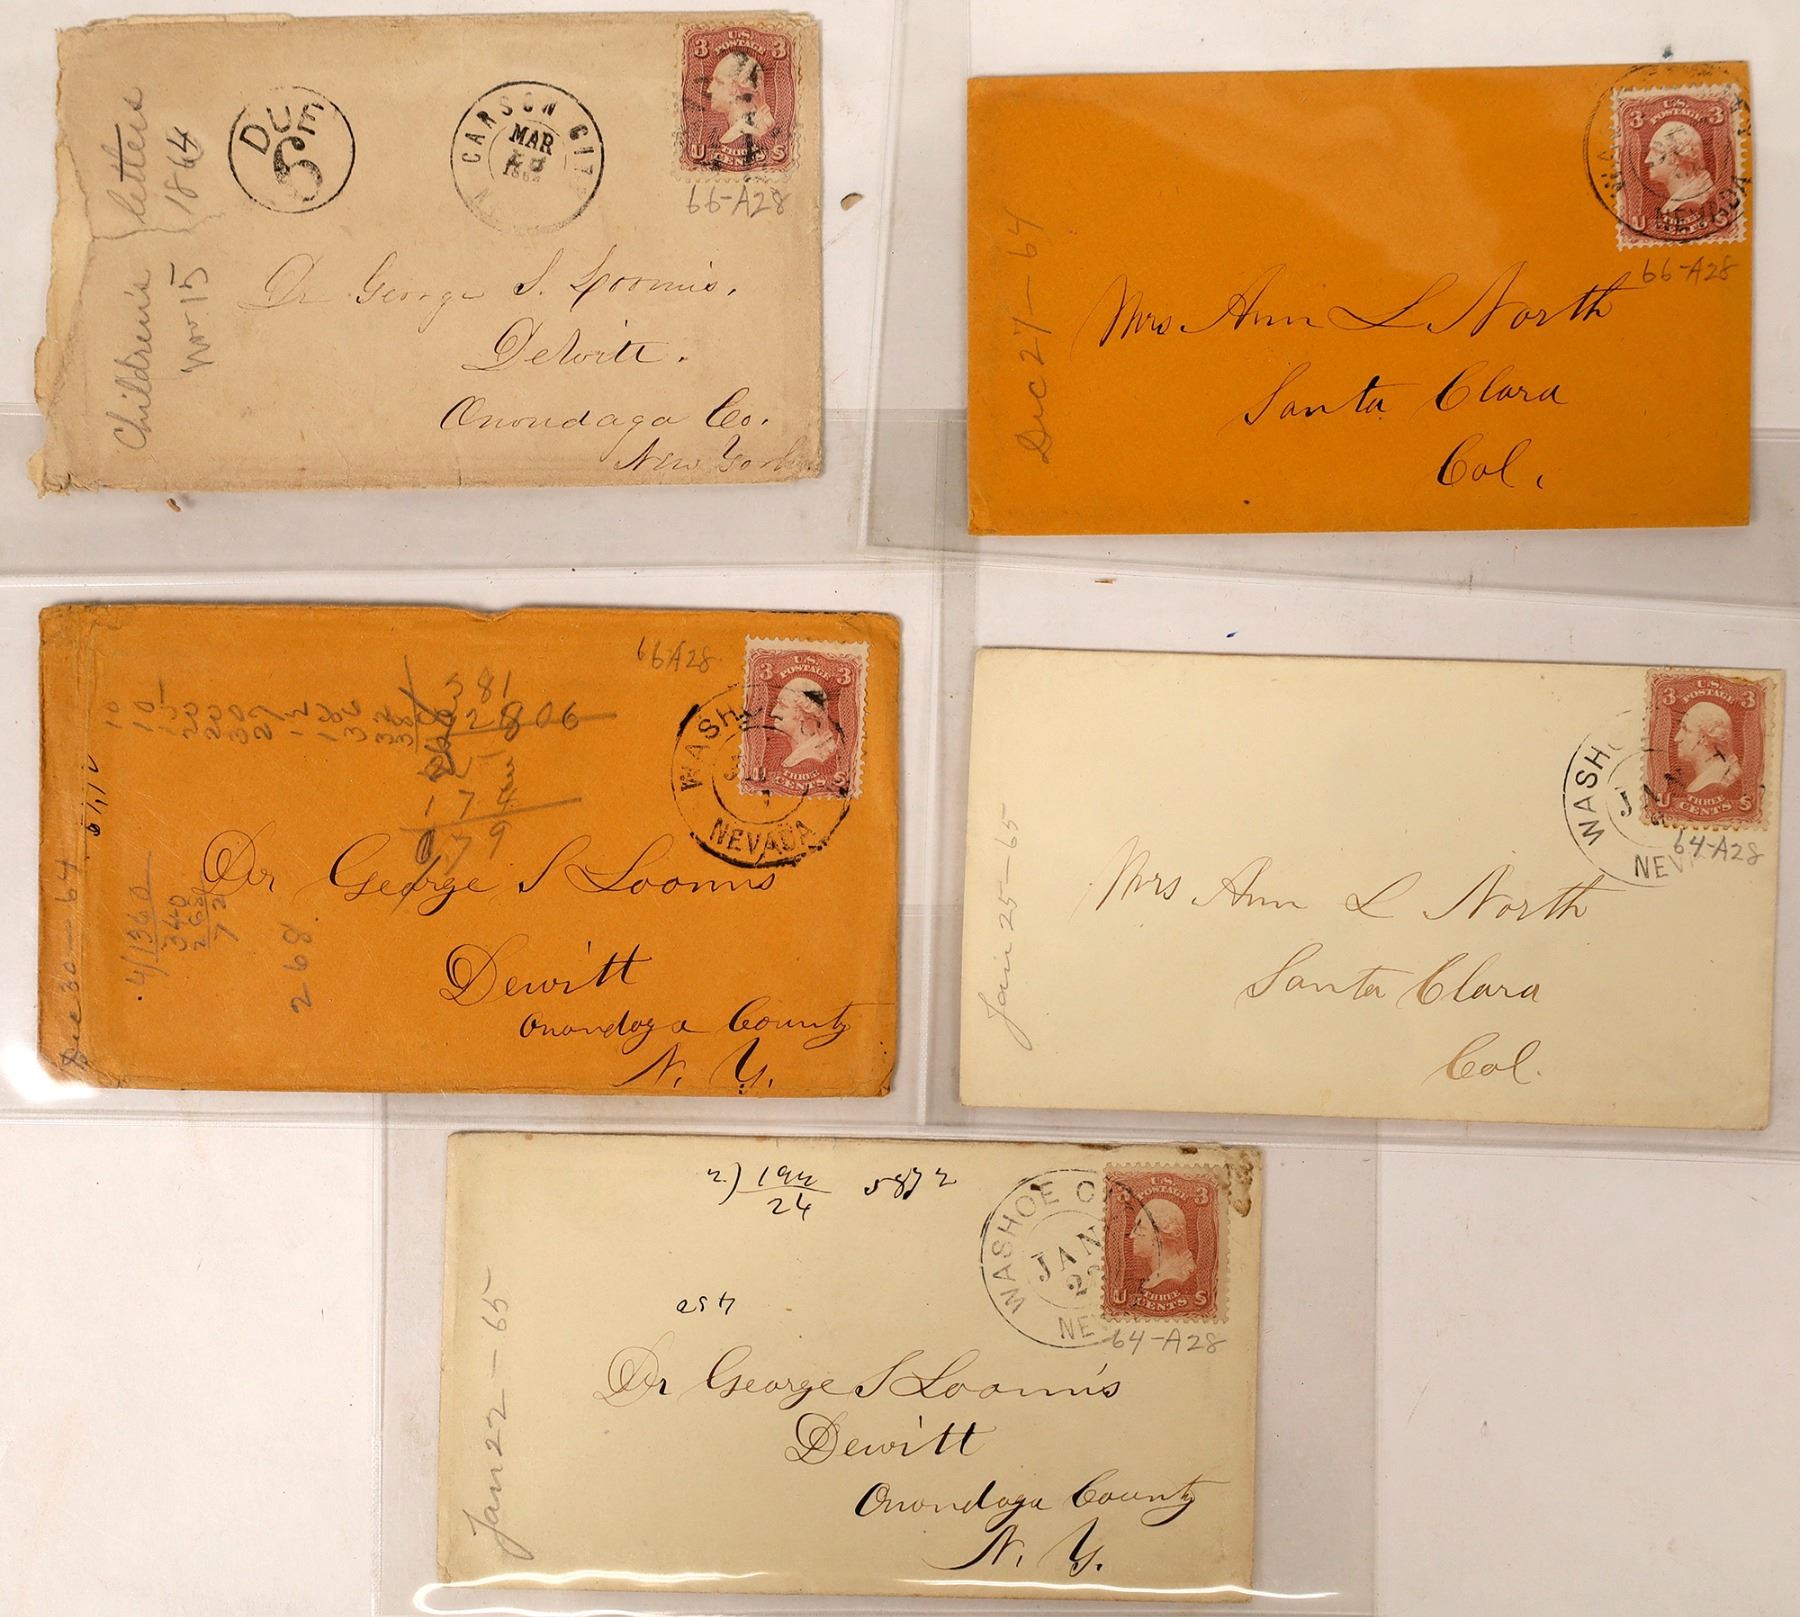 Children's letters
Nov. 15 1864
DUE
6
CARSON CITY
MAR
U.S. POSTAGE
3 3
U THREE CENTS S
66-A28
Dr George S. Loomis.
DeWitt.
Onondaga Co.
New York
Dec 27-64
U.S. POSTAGE
3 3
U CENTS S
NEVADA
66-A28
Mrs Ann L North
Santa Clara
Col.
Dec 30-64
66-A28
U.S. POSTAGE
3 3
THREE CENTS S
WASH
NEVADA
381
22806
174
079
4/1360
340
268
72
268
Dr George S Loomis
Dewitt
Onondaga County
N. Y.
Jan 25-65
U.S. POSTAGE
3 3
U THREE CENTS S
WASHO
JAN
NEV
64-A28
Mrs Ann L North
Santa Clara
Col.
Jan 22-65
24
5872
U.S. POSTAGE
3 3
U THREE CENTS S
WASHOE C
JAN
22
NE
64-A28
Dr George S Loomis
Dewitt
Onondaga County
N. Y.